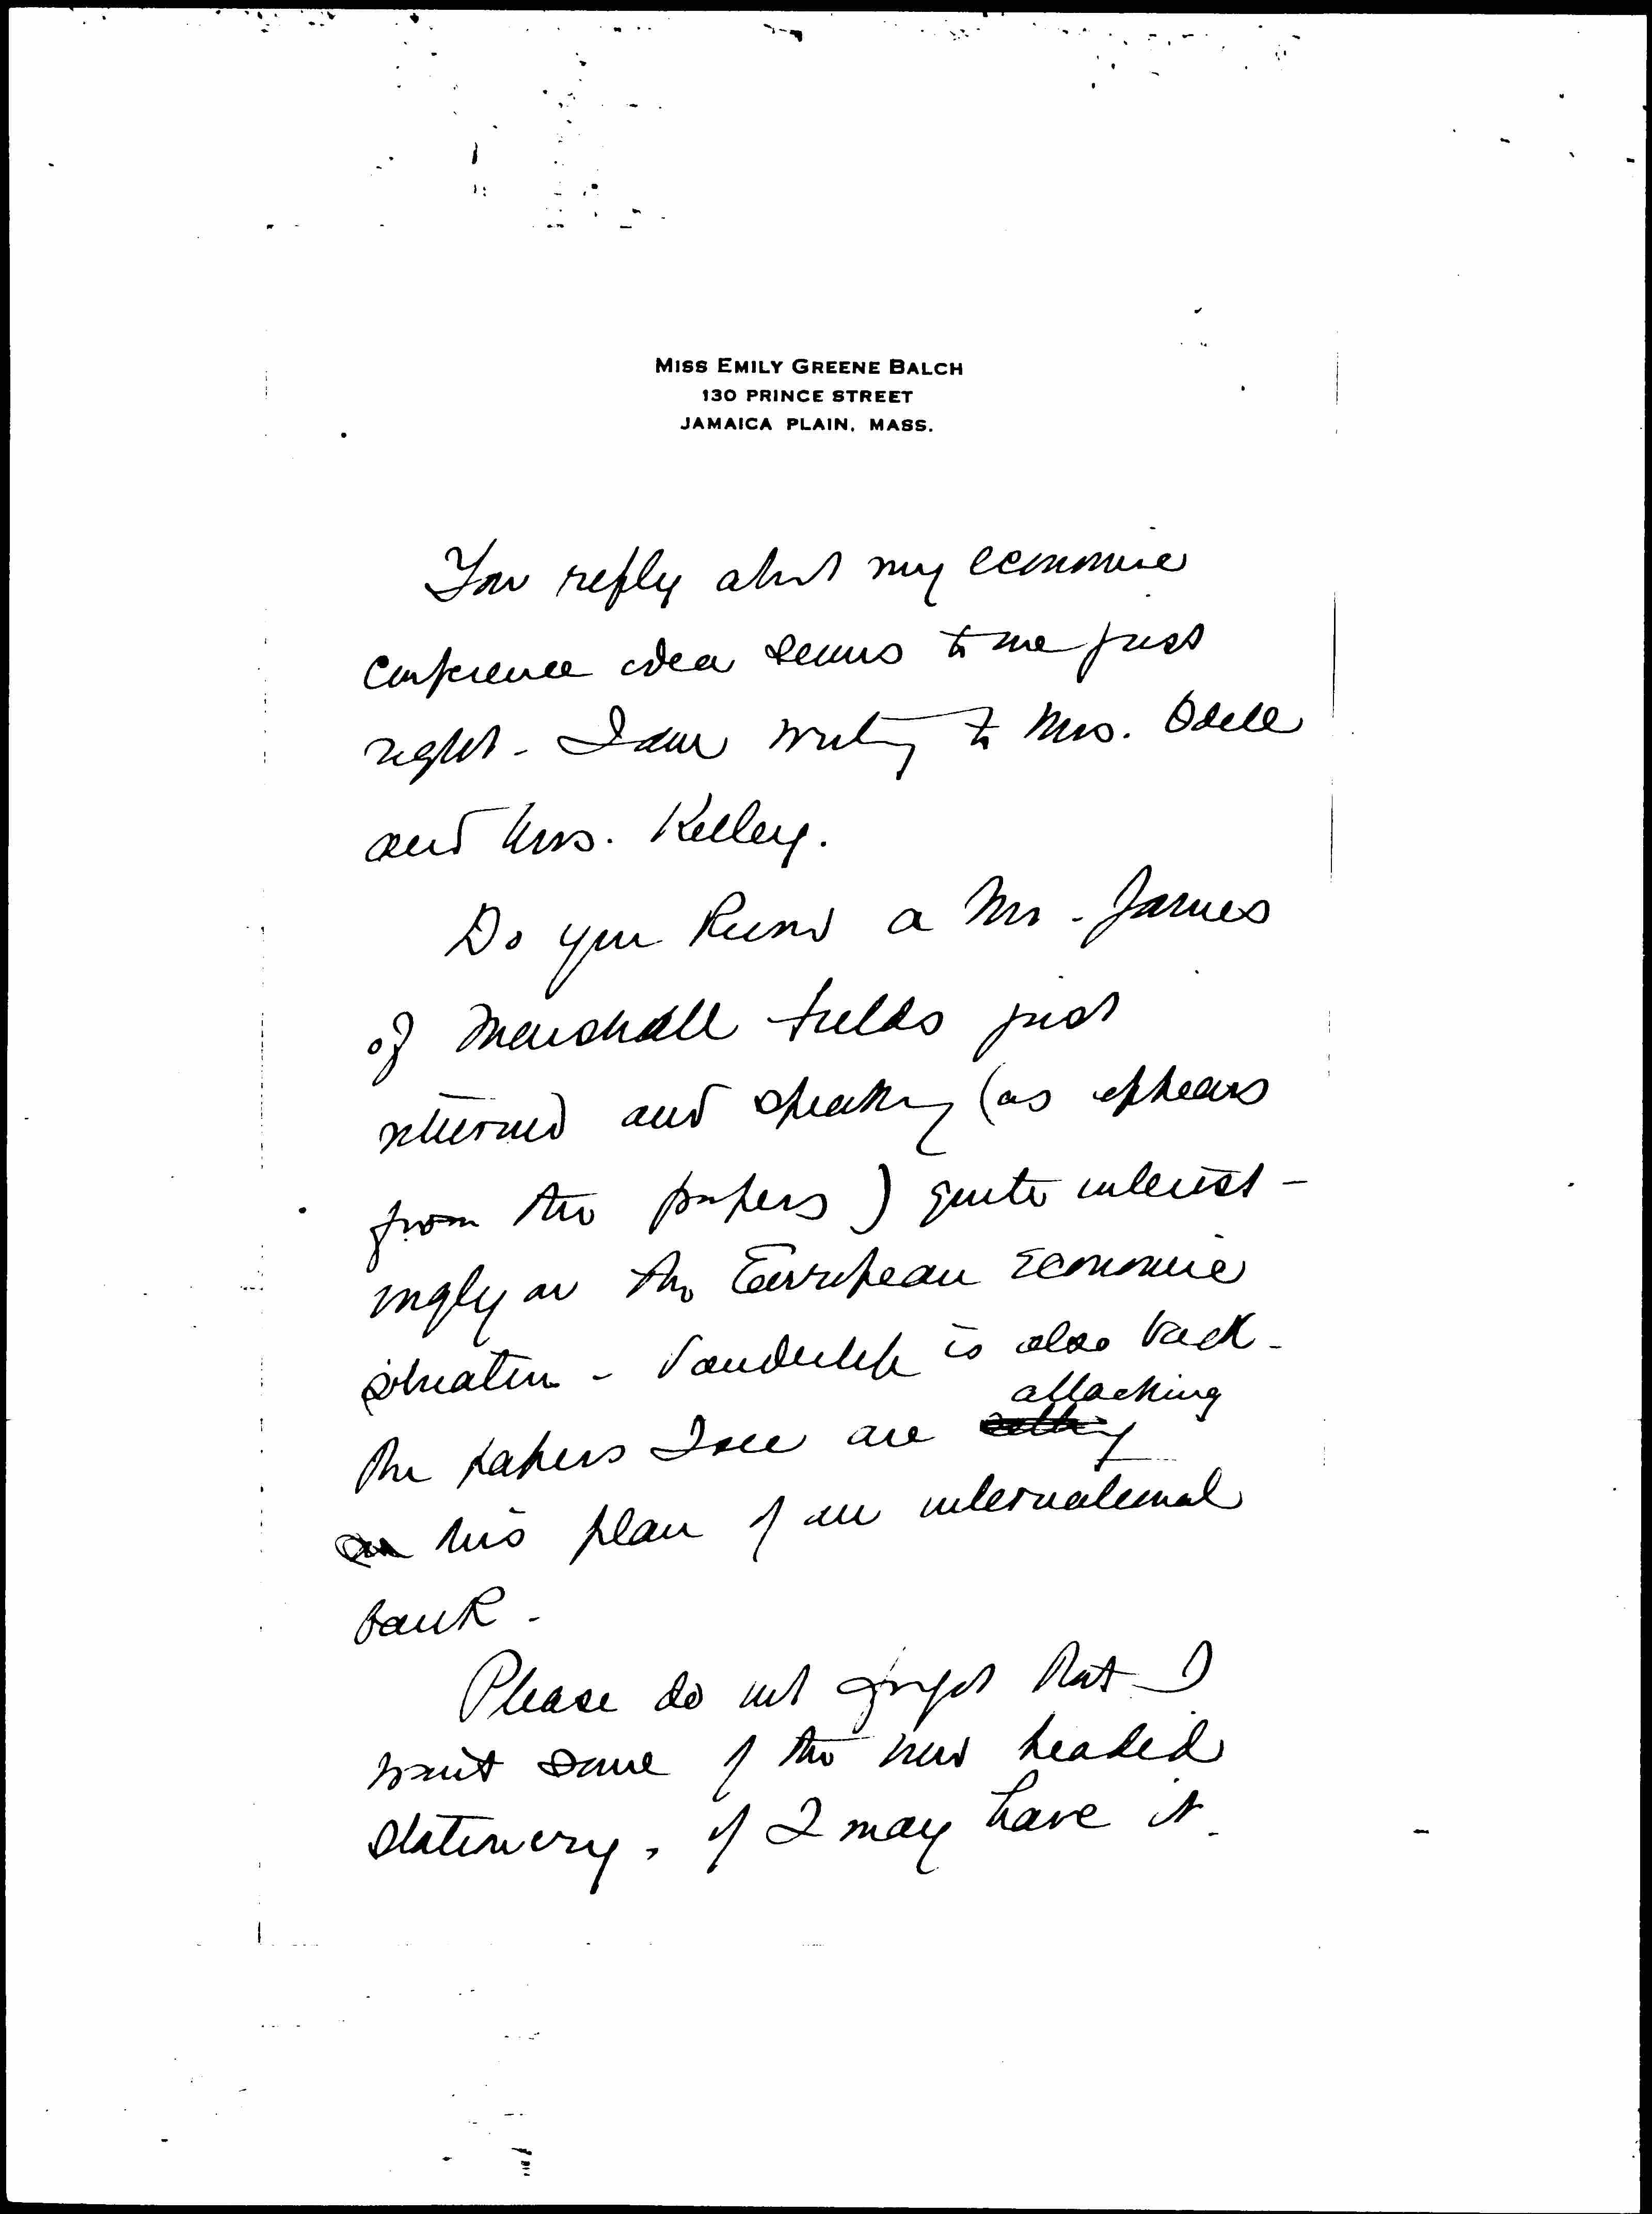 MISS EMILY GREENE BALCH
130 PRINCE STREET
JAMAICA PLAIN, MASS.
Your reply about my economic
conference idea seems to me just
right - I am writing to Mrs. Odell
and Mrs. Kelley.
Do you know a Mr. James
of Marshall Fields just
returned and speaking (as appears
from the papers) quite interest-
ingly on the European economic
situation - Vanderlip is also back -
attacking
The papers I see are
his plan of an international
bank -
Please do not forget that I
want some of the new headed
stationery, if I may have it.